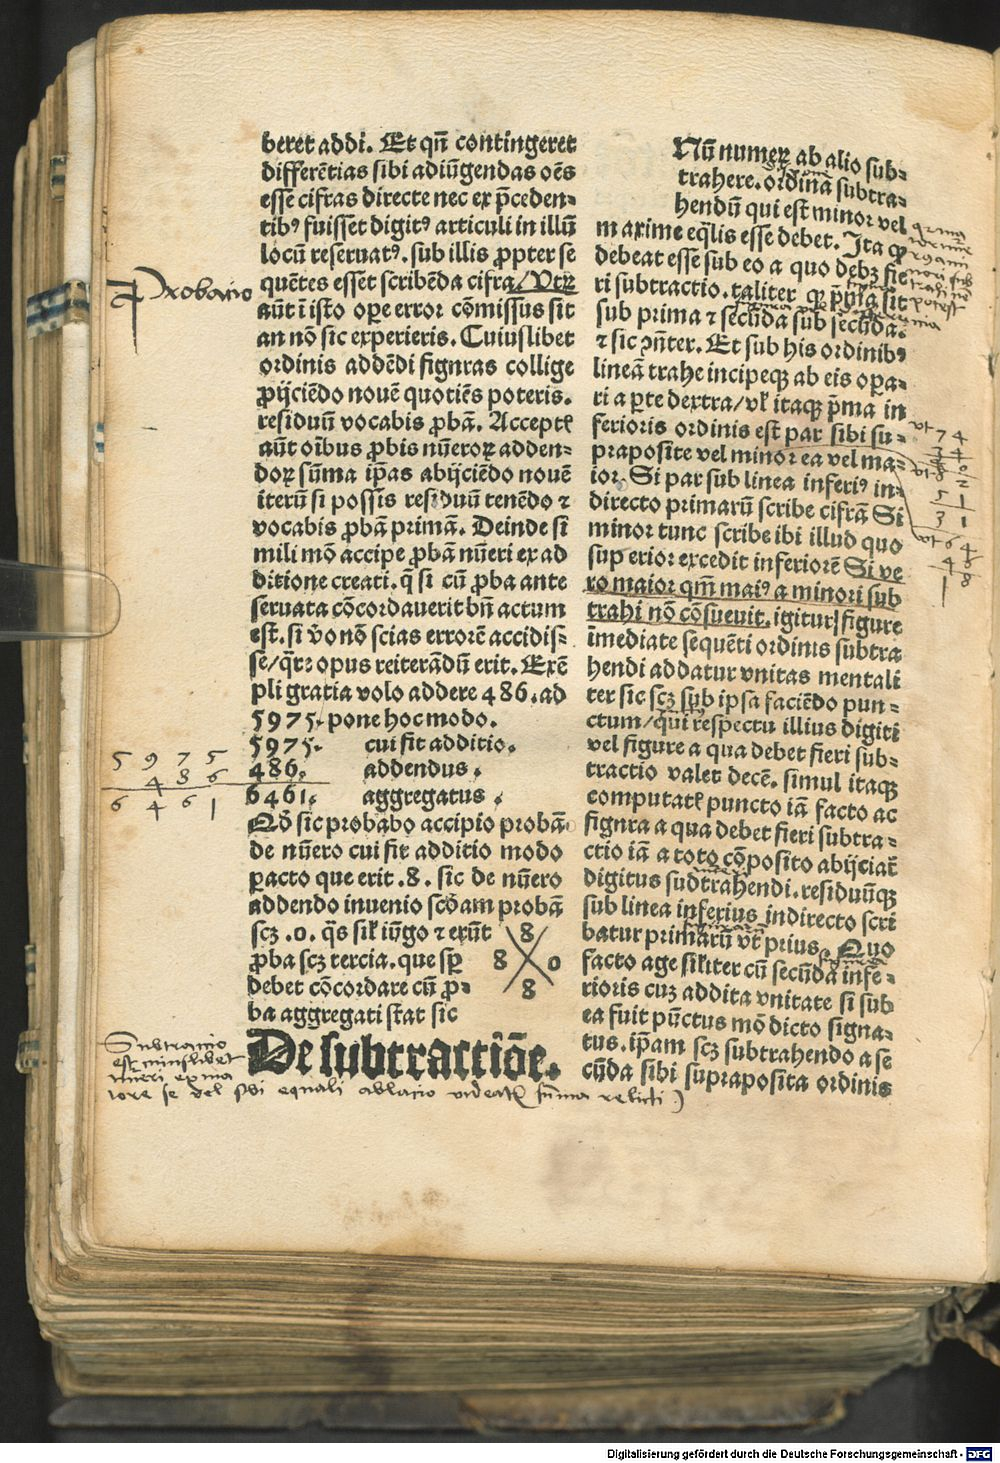 beret addi. Et qñ contingeret
differẽtias sibi adiũgendas oẽs
esse cifras directe nec ex p̃ceden⸗
tibꝰ fuisset digitꝰ articuli in illũ
locũ reseruatꝰ. sub illis ꝓpter se
quẽtes esset scribẽda cifra/Vtꝝ
aũt ĩ isto oꝑe error cõmissus sit
an nõ sic experieris. Cuiuslibet
ordinis addẽdi fignras collige
ꝓijciẽdo nouẽ quotiẽs poteris.
residuũ vocabis ꝓbã. Acceptꝭ
aũt oĩbus ꝓbis nũeroꝝ adden⸗
doꝝ sũma ip̃as abijciẽdo nouẽ
iterũ si possis residuũ tenẽdo ⁊
vocabis ꝓbã primã. Deinde si
mili mõ accipe ꝓbã nũeri ex ad
ditione creati. q̃ si cũ ꝓba ante
seruata cõcordauerit bñ actum
est. si v̾o nõ scias errorẽ accidis⸗
se/q̃r⁊ opus reiterãdũ erit. Exẽ
pli gratia volo addere 486. ad
5975. pone hoc modo.
5975. cui fit additio.
486. addendus.
6461. aggregatus.
Qð sic probabo accipio probã
de nũero cui fit additio modo
ꝑacto que erit .8. sic de nũero
addendo inuenio scðam probã
scꝫ .0. q̃s sil̃ iũgo ⁊ erũt 8
ꝓba scꝫ tercia. que sꝑ 8 0
debet cõcordare cũ ꝓ⸗ 8
ba aggregati stat sic
De subtractiõe.
Probacio
5 9 7 5
4 8 6
6 4 6 1
Subtractio
est minslibet
nũeri ex ma
iore se vel sibi equali ablacio videatꝭ sũma relicti
Nũ numeꝝ ab alio sub⸗
trahere. ordinã subtra⸗
hendũ qui est minor vel
maxime eq̃lis esse debet. Ita ꝙ
debeat esse sub eo a quo debꝫ fie
ri subtractio. taliter ꝙ p̃ma sit
sub prima ⁊ secũda sub secũda.
⁊ sic ꝯñter. Et sub his ordinibꝰ
lineã trahe incipeqꝫ ab eis oꝑa⸗
ri a ꝑte dextra/vl̃ itaqꝫ p̃ma in
ferioris ordinis est par sibi su⸗
praposite vel minor ea vel ma⸗
ior. Si par sub linea inferiꝰ in⸗
directo primarũ scribe cifrã Si
minor tunc scribe ibi illud quo
superior excedit inferiorẽ Si ve
ro maior qm̃ maiꝰ a minori sub
trahi nõ cõsueuit. igitur figure
ĩmediate sequẽti ordinis subtra
hendi addatur vnitas mentali
ter sic scꝫ sub ipsa faciẽdo pun⸗
ctum/qui respectu illius digiti
vel figure a qua debet fieri sub⸗
tractio valet decẽ. simul itaqꝫ
computatꝭ puncto iã facto ac
fignra a qua debet fieri subtra⸗
ctio iã a toto cõposito abijciat̃
digitus sudtrahendi. residuũqꝫ
sub linea inferius indirecto scri
batur primarũ vt̃ prius. Quo
facto age silĩter cũ secũda infe⸗
rioris cuꝫ addita vnitate si sub
ea fuit pũctus mõ dicto signa⸗
tus. ip̃am scꝫ subtrahendo a se
cũda sibi supraposita ordinis
Digitalisierung gefördert durch die Deutsche Forschungsgemeinschaft - DFG